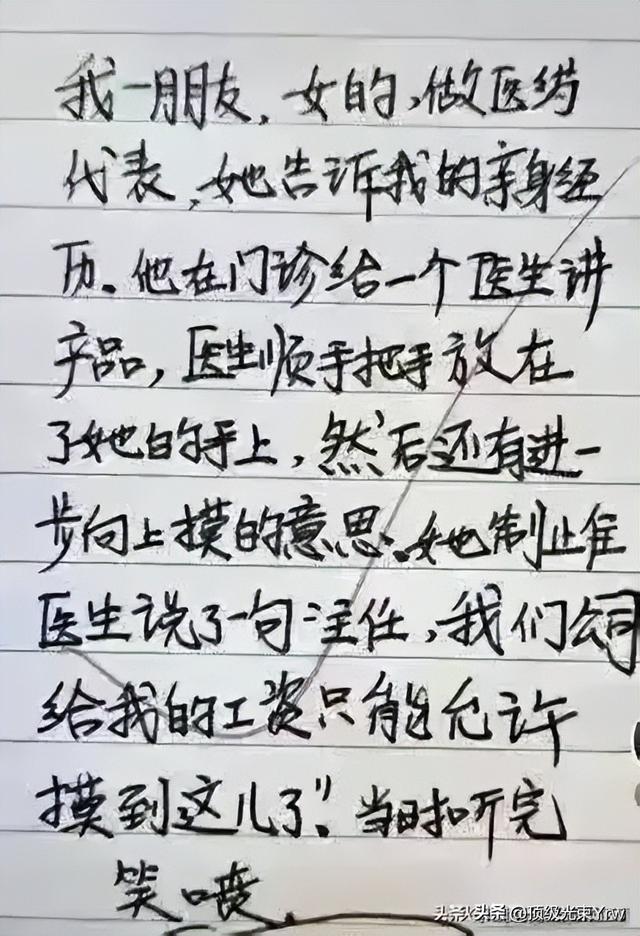 我一朋友，女的，做医药
代表，她告诉我的亲身经
历。他在门诊给一个医生讲
产品，医生顺手把手放在
了她的手上，然后还有进一
步向上摸的意思。她制止住
医生说了一句：主任，我们公司
给我的工资只能允许
摸到这儿了”。当时我听完
笑喷
头条 @顶级光束Yrw